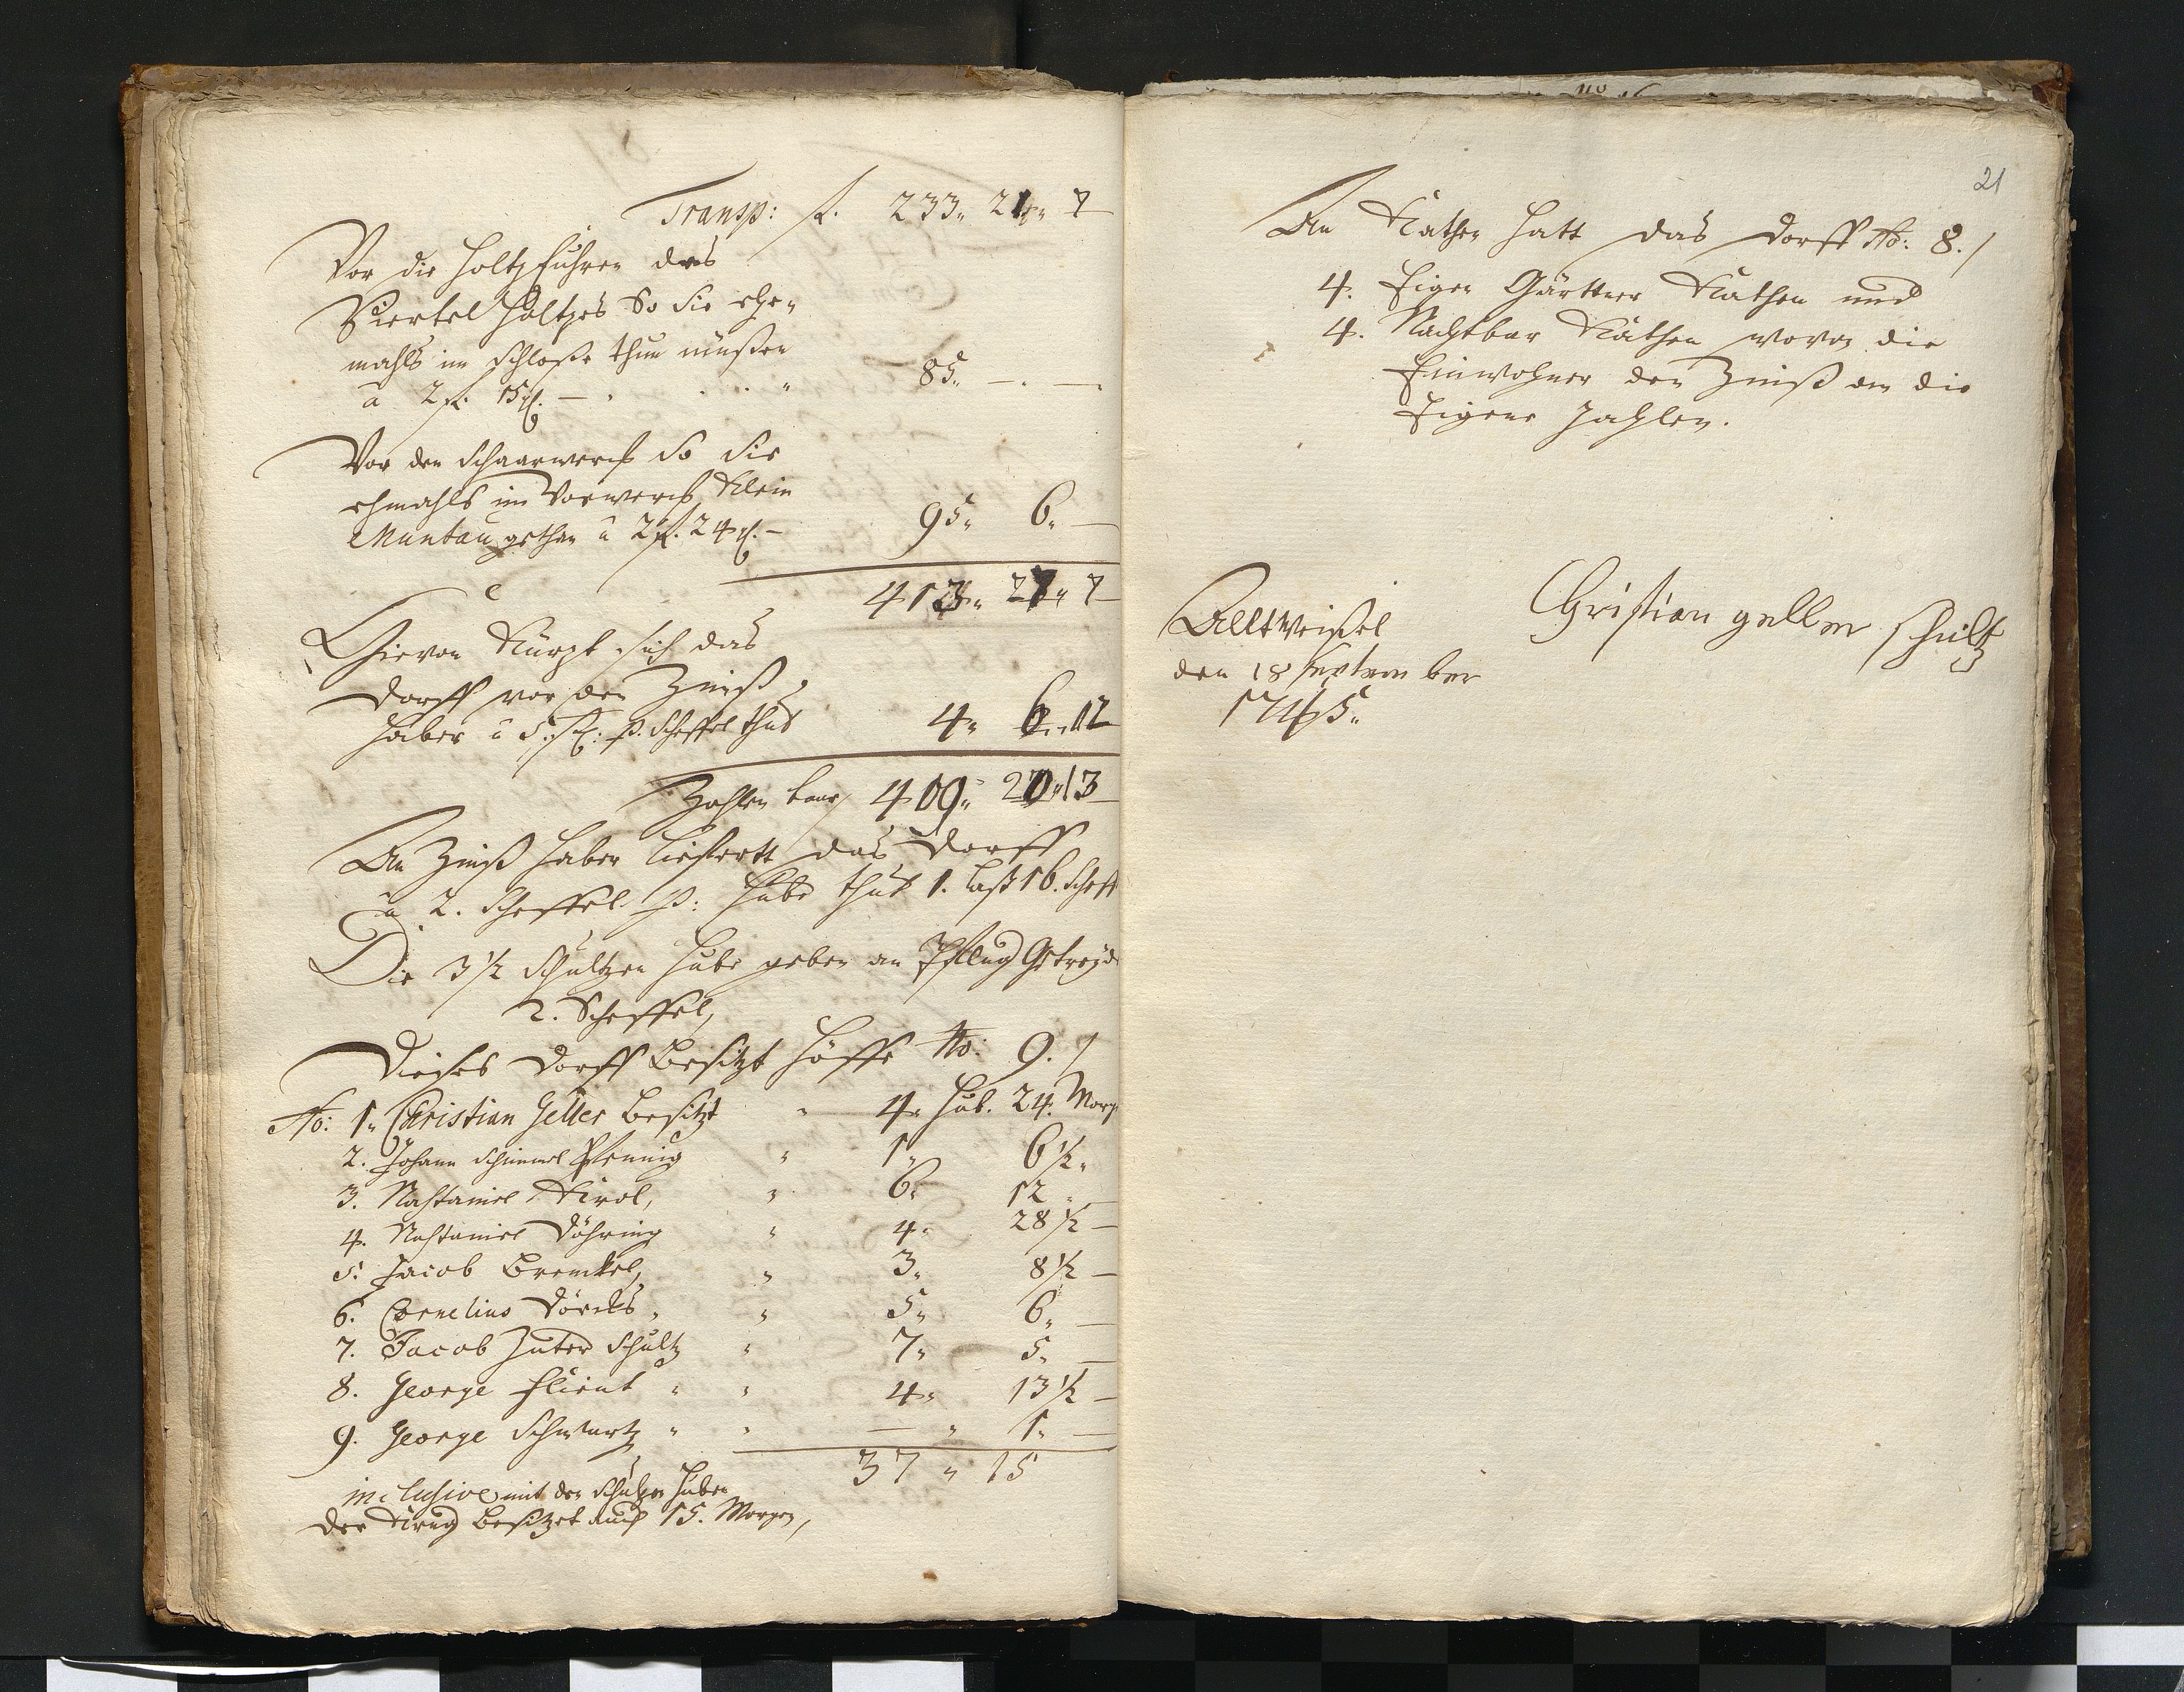 Transp: f. 233„ 21„ 7
Vor die Holtz Fuhren des
Viertel Holtzes So Sie ehe„
mahls im Schloße thun müßen
a 2 f. 15 g. — 85„ —. —.
Vor den Schaarwerck So Sie
ehmahls im Vorwerck Klein
Muntau gethan a 2 f. 24 g. — 95„ 6„ —
413„ 27„ 7
Hievon Kürzt sich das
Dorff vor den Zinß
Haber a 5 f: p. Scheffel thut 4„ 6„ 12
Zahlen baar 409„ 20„ 13
An Zinß Haber liefertt das Dorff
a 2. Scheffel p: Hube thut 1. Last 16. Scheff
Die 3 1/2 Schultzen Hube geben an Pflug Getreyd
2. Scheffel,
Dieses Dorff Besitzt Höffe No: 9. /
No: 1„ Christian Geller Besitzt 4„ Hub. 24. Morg
2. Johann Schimmel Pfennig „ 1„ 6 1/2„
3. Nathaniel Kirol, „ 6„ 12„ —
4. Nathaniel Döhring „ 4„ 28 1/2 —
5. Jacob Brenckel, „ 3„ 8 1/2 —
6. Cornelius Dörcks, „ 5„ 6„ —
7. Jacob Huter Schultz „ 7„ 5„ —
8. George Flient „ „ 4„ 13 1/2 —
9. George Schwartz „ „ — „ 1„ —
37 „ 15
inclusive mit den Schultzen Huben
Der Krug Besitzet auch 15. Morgen,
21
An Kathen hatt das Dorff No: 8. /
4. Eigen Gärttner Kathen und
4. Nachtbar Kathen wovor die
Einwohner den Zinß an die
Eigene Zahlen.
Alltweißel
den 18 September
1745„
Christian geller schultz